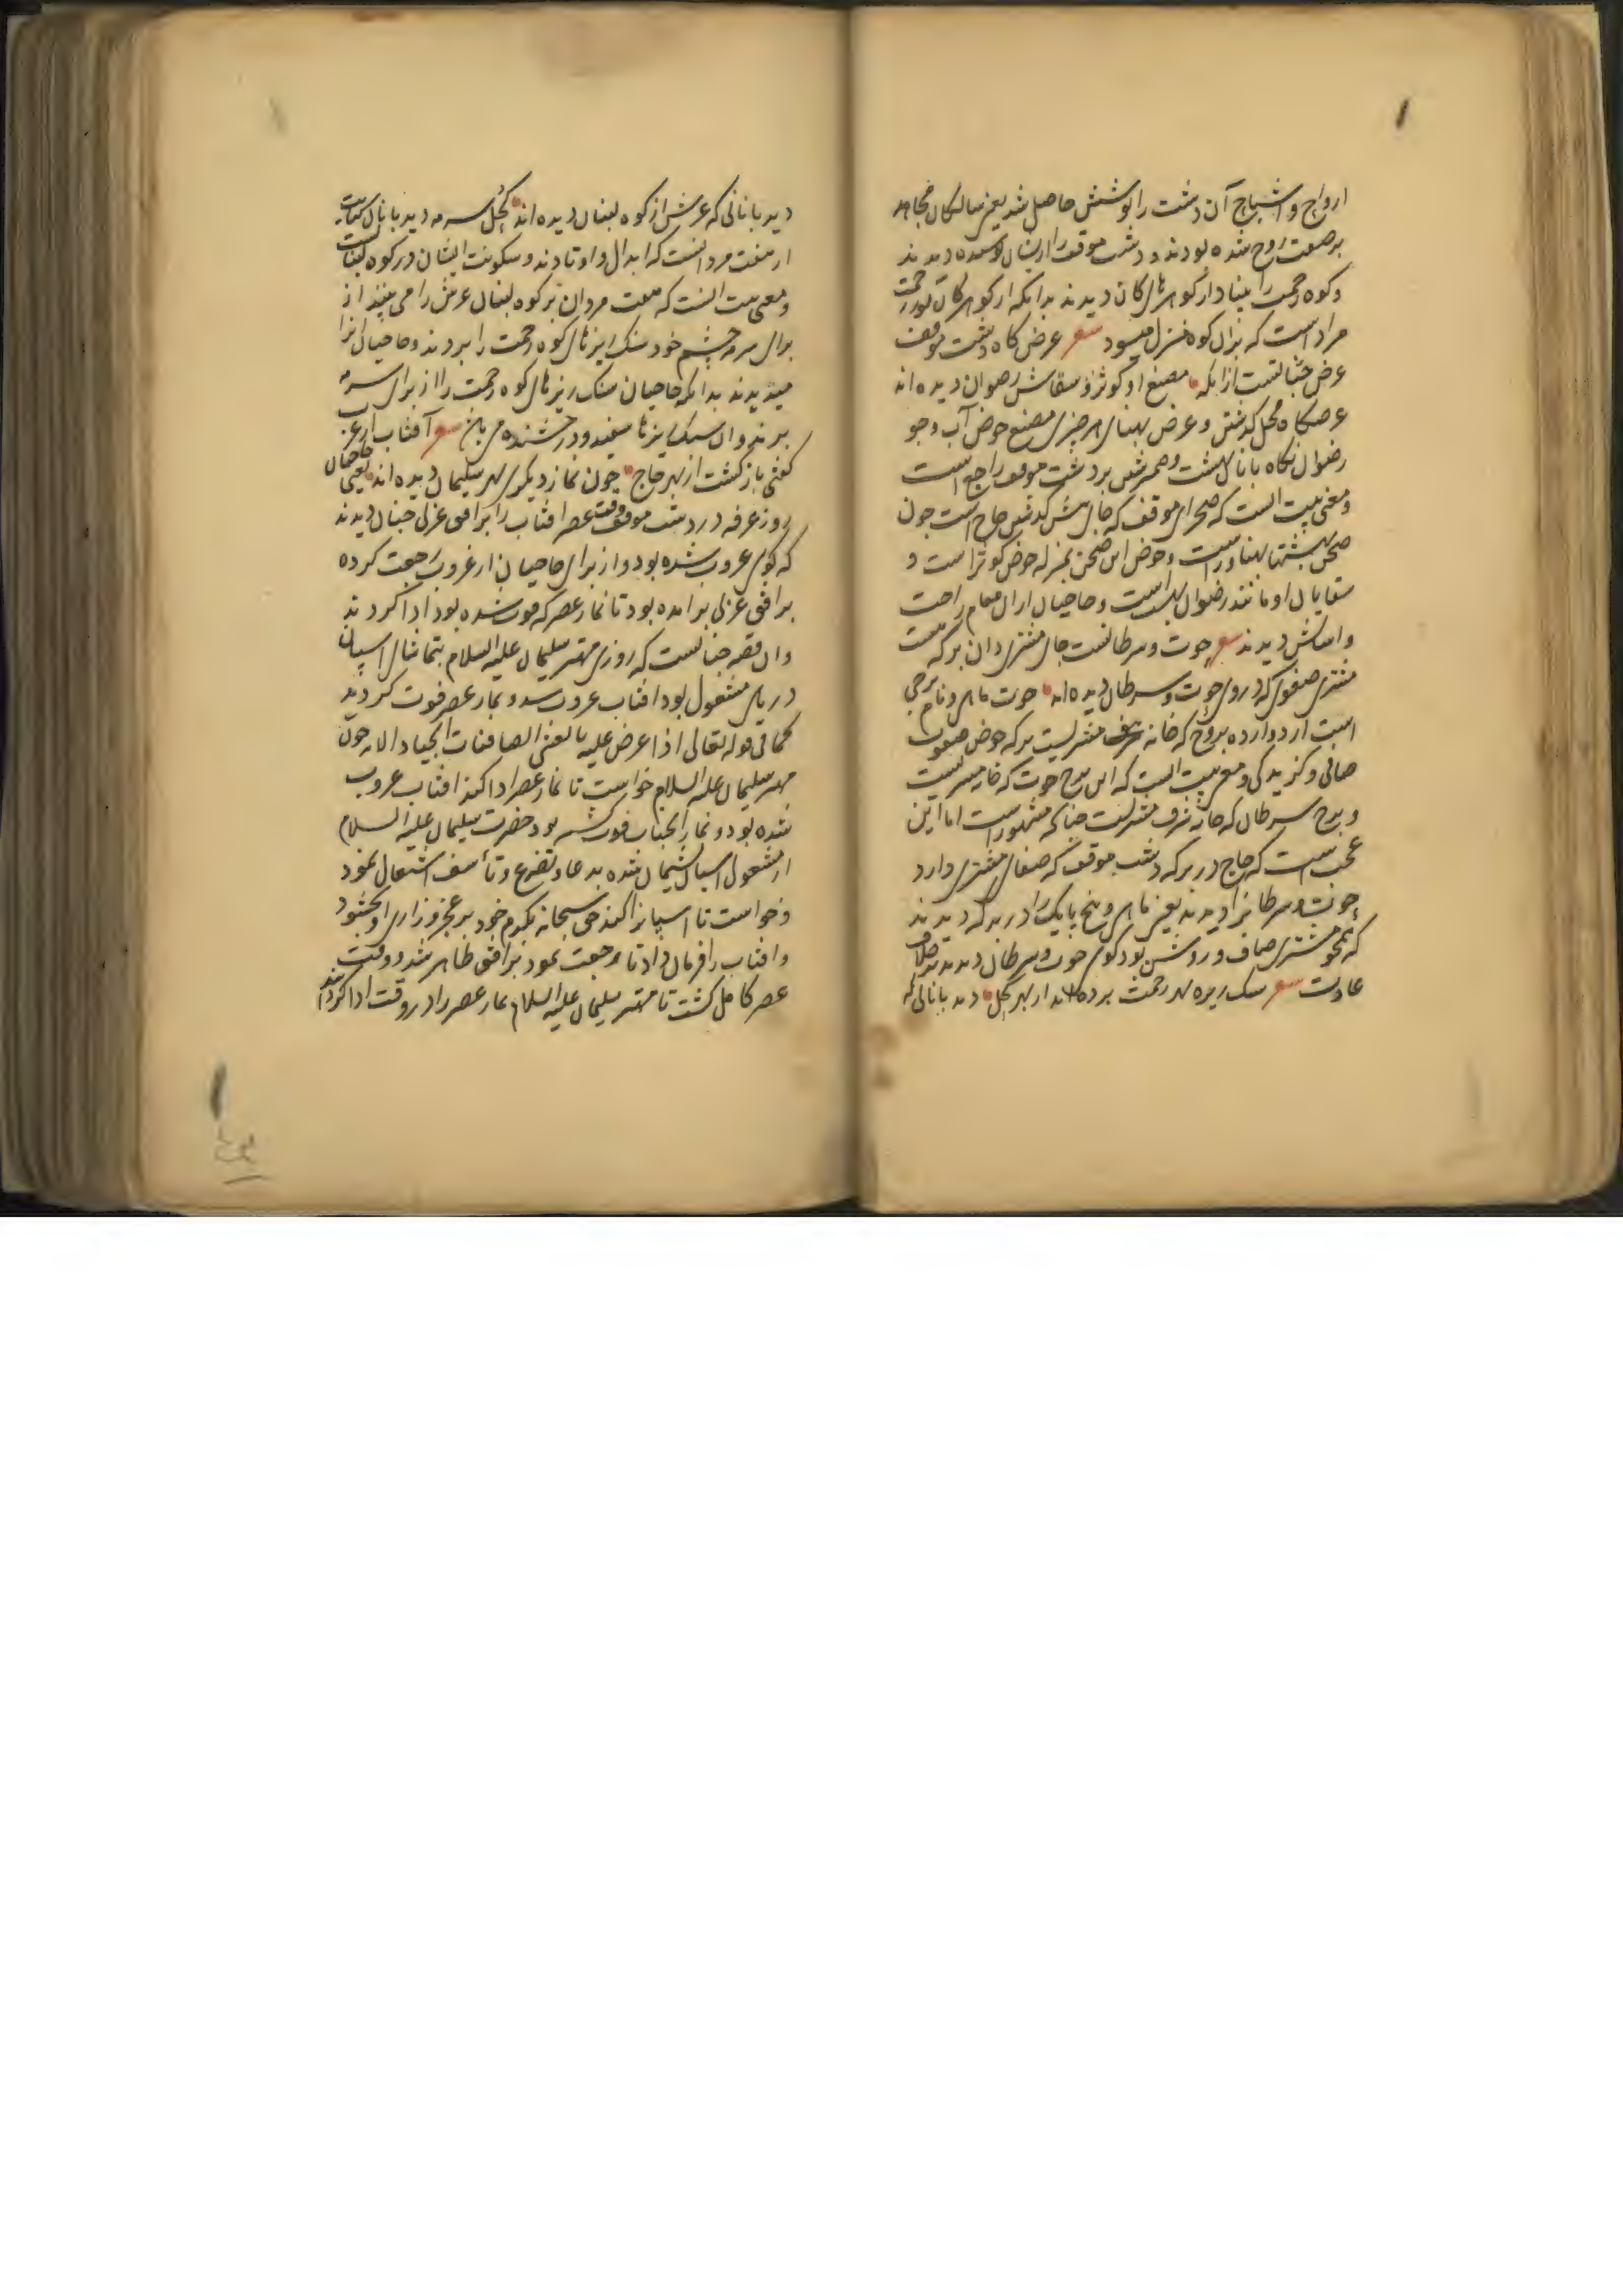 ارواح و اشباح آن دشت را پوشش حاصل شد یعنی سالکان مجاهد
بر صفت روح شده بودند و دشت موقف را ازیشان پوشیده دیدند
و کوه رحمت را مینا دار کوهرهای کان دیدند بدانکه از کوهر کان نور رحمت
مراد است که بران کوه منزل میشود شعر عرض کاه دشت موقف
عرض جنانست از انکه مصنع او کوثر و سقاش رضوان دیده اند
عرضکاه محل کذشتن و عرض پهنای هر چیزی مصنع حوض آب و جو
رضوان نکاه بانان بهشت و ضمیرشین بر دشت موقف راجع است
و معنی بیت آنست که صحرای موقف که جای پیش کذشتن حاج است چون
صحن بهشتها پهناورست و حوض این صحن بمنزله حوض کوثر است و
سقایان او مانند رضوان بهشت است و حاجیان از آن مقام راحت
و آسایش دیدند شعر حوت و سرطانست جای مشتری وان برکه هست
مشتری صفوی که در وی حوت و سرطان دیده اند حوت ماهی و نام برجی
است از دوازده بروج که خانه مشتریست برکه حوض صفوت
صافی و کزیدکی و معنی بیت آنست که این برج حوت که خانه مشتریست
و برج سرطان که خانه شرف مشتریست چنانکه مشهور است اما این
عجب است که حاج در برکه دشت موقف که صفای مشتری دارد
حوت و سرطانرا دیدند یعنی ماهی و پنج پایک را در برکه دیدند
که همچو مشتری صاف و روشن بود کوی حوت و سرطان دیدند بر خلاف
عادت شعر سنک ریزه کوه رحمت برده اند از بهر کحل دیده بانانی که
دیده بانانی که عرش از کوه لبنان دیده اند کحل سرمه دیده بانان کنایت
از هفت مردانست که ابدال و اوتادند و سکونت ایشان در کوه لبنانست
و معنی بیت آنست که هفت مردان بر کوه لبنان عرش را می بینند از
برای سرمه چشم خود سنک ریزهای کوه رحمت را بردند و حاجیان آنرا
میدیدند بدانکه حاجیان سنک ریزهای کوه رحمت را از برای سرمه
برند و آن سنک ریزها سفید و درخشنده می باشد شعر آفتاب از غرب
کفتی باز کشت از بهر حاج چون نماز دیکری بهر سلیمان دیده اند یعنی حاجیان
روز عرفه در دشت موقف وقت عصر افتاب را بر افق غربی چنان دیدند
که کوی غروب شده بود و از برای حاجیان از غروب رجعت کرده
بر افق غربی برآمده بود تا نماز عصر که فوت شده بود ادا کردند
و ان قصه چنانست که روزی مهتر سلیمان علیه السلام بتماشای اسپان
دریای مشغول بود افتاب غروب شد و نماز عصر فوت کردند
کما فی قوله تعالی اذا عرض علیه بالعشی الصافنات الجیاد الایه چون
مهتر سلیمان علیه السلام خواست تا نماز عصر ادا کند افتاب غروب
شده بود و نماز آنجناب فوت شد بود حضرت سلیمان علیه السلام
از مشغولی اسپان پشیمان شده بدعا و تضرع و تأسف اشتغال نمود
و خواست تا اسپانرا کند حق سبحانه بکرم خود بر عجز و زاری او بخشود
و افتاب را فرمان داد تا مراجعت نمود بر افق ظاهر شد و وقت
عصر کامل کشت تا مهتر سلیمان علیه السلام نماز عصر را در وقت ادا کردند